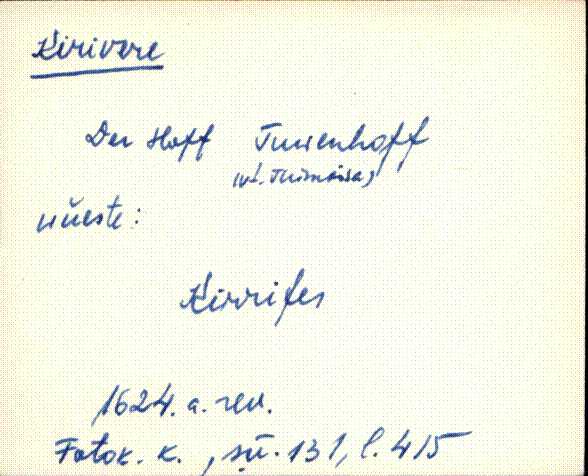 Kirivere
Der Hoff Turienhoff
(vt. Türi mõisa)
wüeste:
Kirrifer
1624. a. rev.
Fotok. k., sü. 131, l. 415